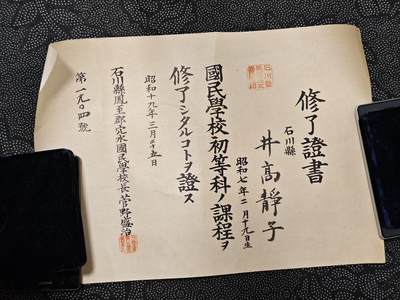 修了證書
石川縣
井高靜子
昭和七年二月十九生
國民學校初等科ノ課程ヲ
修了シタルコトヲ證ス
昭和十九年三月二十五日
石川縣鳳至郡穴水國民學校長菅野
第一九〇四號